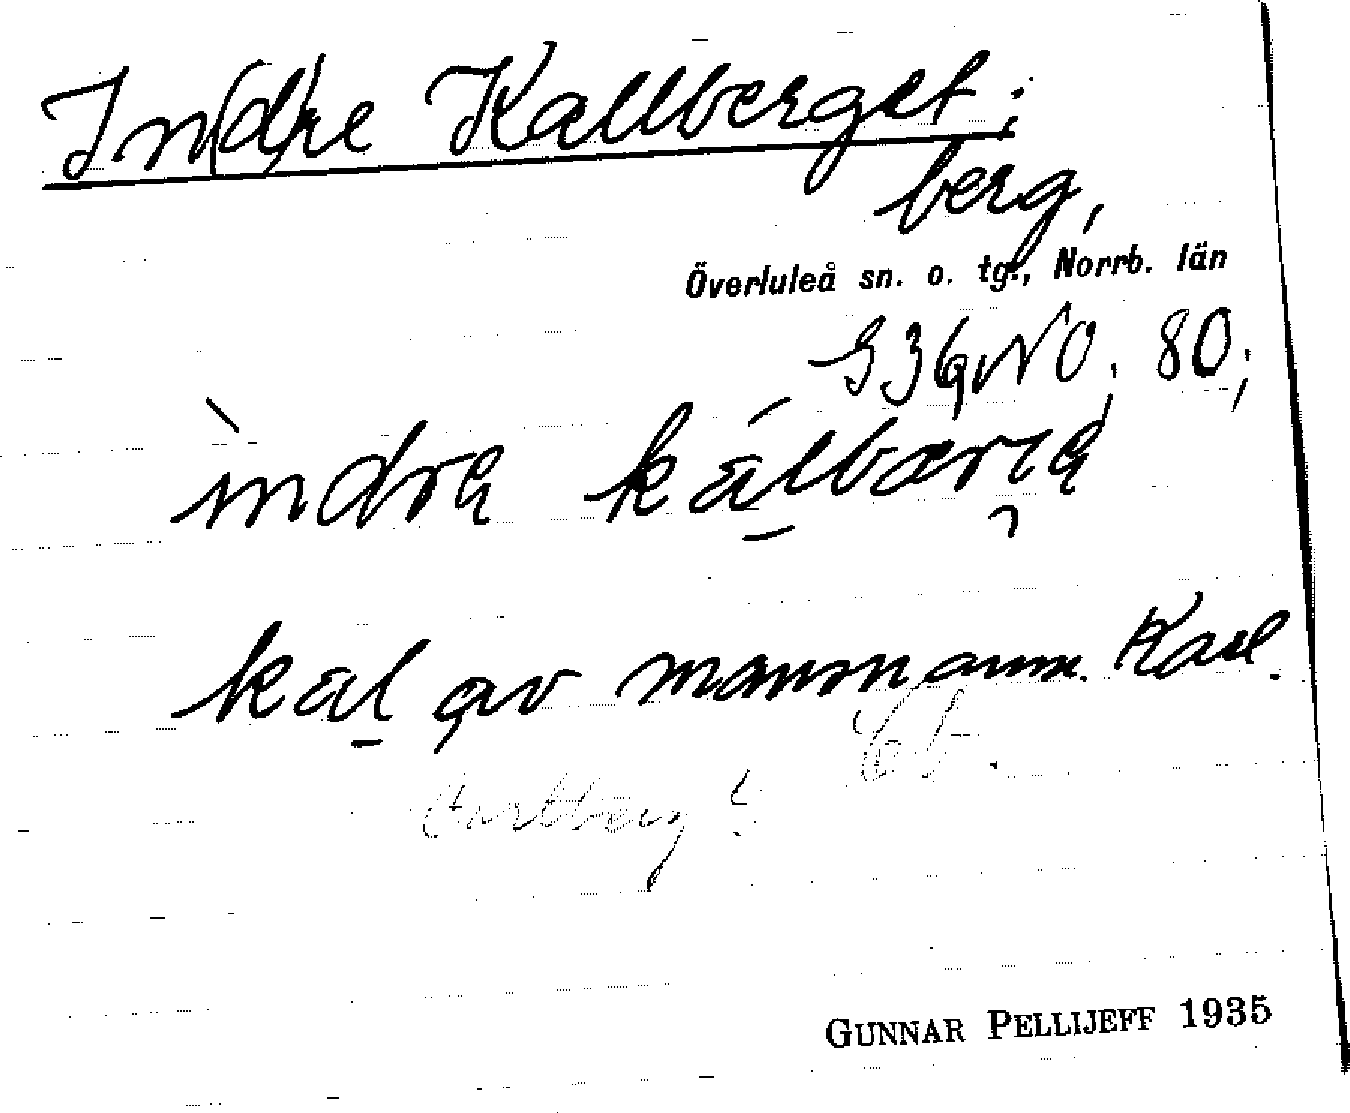 In(d)re Kallberget;
berg,
Överluleå sn. o. tg., Norrb. län
NO. 80;
ìndrę kálbærɳę
kal av mansnamn. Karl.
GUNNAR PELLIJEFF 1935